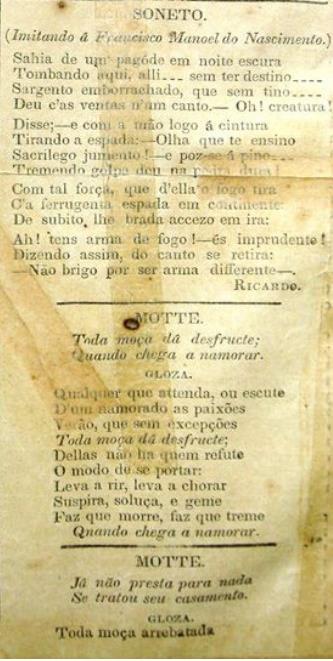 SONETO.
(Imitando á Francisco Manoel do Nascimento.)
Sahia de um pagóde em noite escura
Tombando aqui, alli---sem ter destino----
Sargento emborrachado, que sem tino----
Deu c'as ventas n'um canto.— Oh! creatura!
Disse;—e com a mão logo á cintura
Tirando a espada:—Olha que te ensino
Sacrilego jumento!—e poz-se á pino---
Tremendo golpe deu na pedra dura!
Com tal força, que d'ella o fogo tira
C'a ferrugenta espada em continente:
De subito, lhe brada accezo em ira:
Ah! tens arma de fogo!—és imprudente!
Dizendo assim, do canto se retira:
—Não brigo por ser arma differente—.
RICARDO.
MOTTE.
Toda moça dá desfructe;
Quando chega a namorar.
GLOZA.
Qualquer que attenda, ou escute
D'um namorado as paixões
Verão, que sem excepções
Toda moça dá desfructe;
Dellas não ha quem refute
O modo de se portar:
Leva a rir, leva a chorar
Suspira, soluça, e geme
Faz que morre, faz que treme
Quando chega a namorar.
MOTTE.
Já não presta para nada
Se tratou seu casamento.
GLOZA.
Toda moça arrebatada